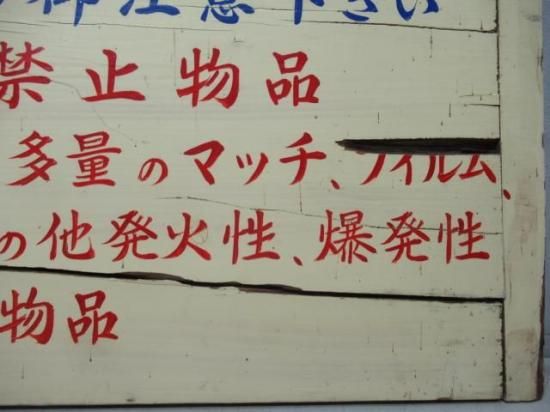 御注意下さい
禁止物品
多量のマッチ、フィルム、
の他発火性、爆発性
物品